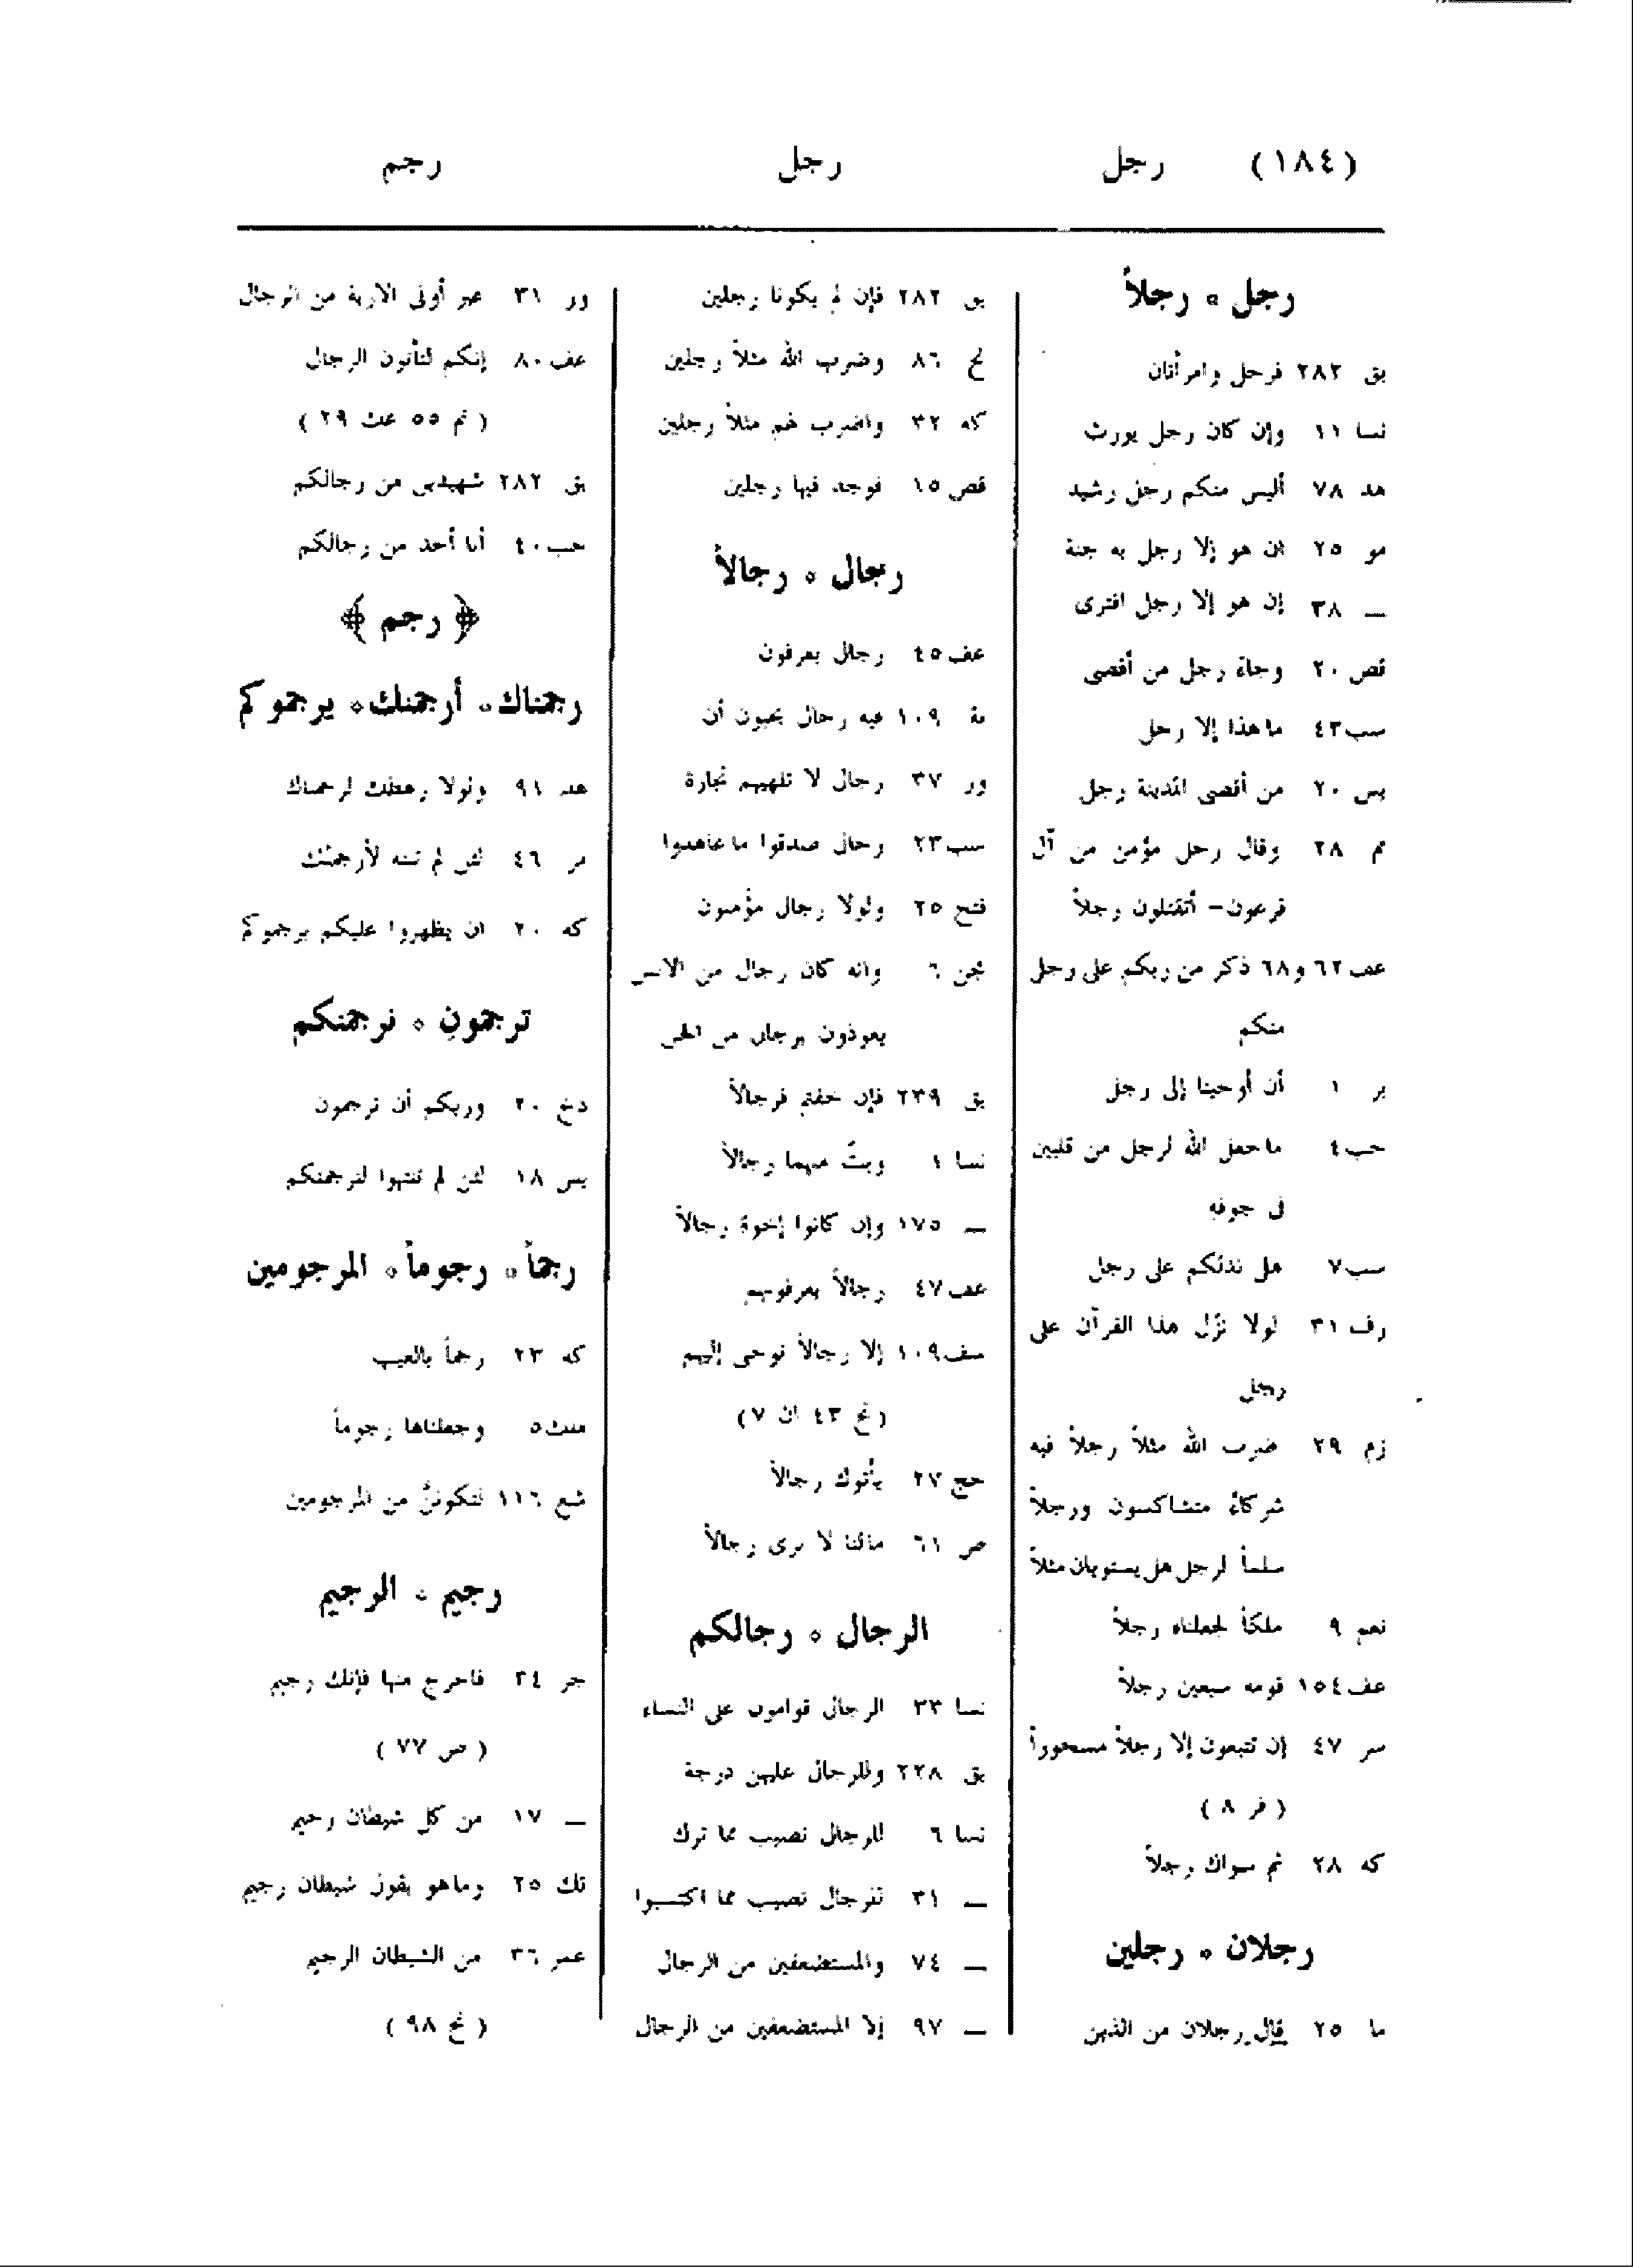 (١٨٤) رجل رجل رجم
رجل ه رجلاً
بق ٢٨٢ فرجل وامرأتان
نسا ١١ وإن كان رجل يورث
هد ٧٨ أليس منكم رجل رشيد
مو ٢٥ ان هو إلا رجل به جنة
— ٣٨ إن هو إلا رجل افترى
قص ٢٠ وجاء رجل من أقصى
سب ٤٣ ما هذا إلا رجل
يس ٢٠ من أقصى المدينة رجل
تم ٢٨ وقال رجل مؤمن من آل
فرعون - أتقتلون رجلاً
عف ٦٢ و ٦٨ ذكر من ربكم على رجل
منكم
ير ١ أن أوحينا إلى رجل
حب ٤ ما جعل الله لرجل من قلبين
فى جوفه
سب ٧ هل ندلكم على رجل
رف ٣١ لولا نزّل هذا القرآن على
رجل
زم ٢٩ ضرب الله مثلاً رجلاً فيه
شركاء متشاكسون ورجلاً
سلماً لرجل هل يستويان مثلاً
نعم ٩ ملكاً لجعلناه رجلاً
عف ١٥٤ قومه سبعين رجلاً
سر ٤٧ إن تتبعون إلا رجلاً مسحوراً
( فر ٨ )
كه ٢٨ ثم سواك رجلاً
رجلان ه رجلين
ما ٢٥ قال رجلان من الذين
بق ٢٨٢ فإن لم يكونا رجلين
نح ٨٦ وضرب الله مثلاً رجلين
كه ٣٢ واضرب لهم مثلاً رجلين
قص ١٥ فوجد فيها رجلين
رجال ه رجالاً
عف ٤٥ رجال يعرفون
بة ١٠٩ فيه رجال يحبون أن
ور ٣٧ رجال لا تلهيهم تجارة
سب ٢٣ رجال صدقوا ما عاهدوا
فتح ٢٥ ولولا رجال مؤمنون
جن ٦ وانه كان رجال من الانس
يعوذون برجال من الجن
بق ٢٣٩ فإن خفتم فرجالاً
نسا ١ وبثّ منهما رجالاً
— ١٧٥ وإن كانوا إخوة رجالاً
عف ٤٧ رجالاً يعرفونهم
سف ١٠٩ إلا رجالاً نوحى إليهم
( نح ٤٣ ان ٧ )
حج ٢٧ يأتوك رجالاً
ص ٦١ مالنا لا نرى رجالاً
الرجال ه رجالكم
نسا ٣٣ الرجال قوامون على النساء
بق ٢٢٨ وللرجال عليهن درجة
نسا ٦ للرجال نصيب مما ترك
— ٣١ للرجال نصيب مما اكتسبوا
— ٧٤ والمستضعفين من الرجال
— ٩٧ إلا المستضعفين من الرجال
ور ٣١ غير أولى الاربة من الرجال
عف ٨٠ إنكم لتأتون الرجال
( نم ٥٥ عك ٢٩ )
بق ٢٨٢ شهيدين من رجالكم
حب ٤٠ أبا أحد من رجالكم
﴿ رجم ﴾
رجمناك ه أرجمنك ه يرجموكم
هد ٩١ ولولا رهطك لرجمناك
مر ٤٦ لئن لم تنته لأرجمنّك
كه ٢٠ ان يظهروا عليكم يرجموكم
ترجمونِ ه نرجمنكم
دخ ٢٠ وربكم أن ترجمون
يس ١٨ لئن لم تنتهوا لنرجمنكم
رجماً ه رجوماً ه المرجومين
كه ٢٣ رجماً بالغيب
ملك ٥ وجعلناها رجوماً
شع ١١٦ لتكوننّ من المرجومين
رجيم ه الرجيم
جر ٣٤ فاخرج منها فإنك رجيم
( ص ٧٧ )
— ١٧ من كل شيطان رجيم
تك ٢٥ وما هو بقول شيطان رجيم
عمر ٣٦ من الشيطان الرجيم
( نح ٩٨ )